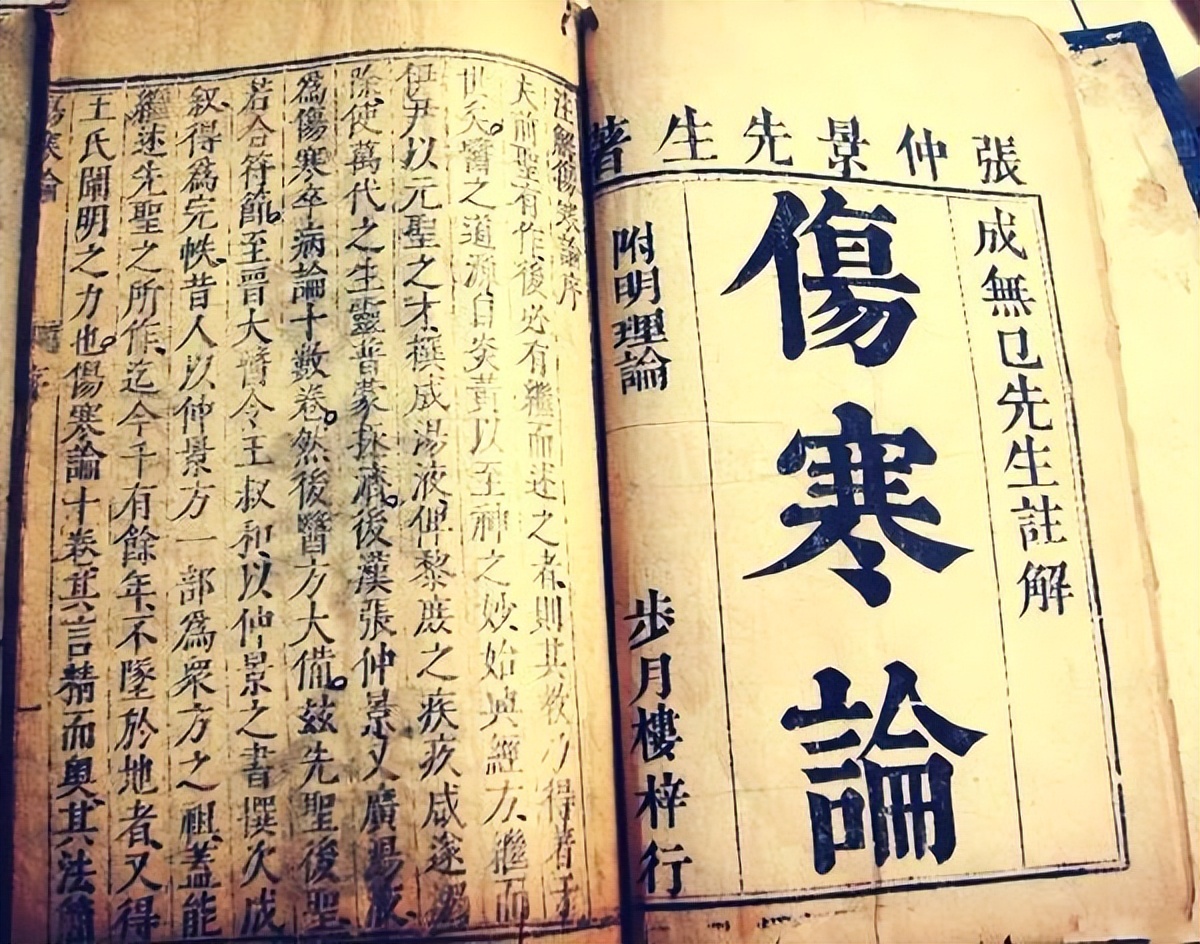 張仲景先生著
成無已先生註解
傷寒論
附明理論
步月樓梓行
注解傷寒論序
夫前聖有作後必有繼而述之者、則其教乃得著于
世矣。醫之道源自炎黃以至神之妙始興經方、繼而
伊尹以元聖之才撰成湯液、俾黎庶之疾疚咸遂蠲
除、使萬代之生靈普蒙拯濟。後漢張仲景又廣湯液
爲傷寒卒病論十數卷。然後醫方大備。茲先聖後聖
若合符節。至晉大醫令王叔和、以仲景之書撰次成
叙、得爲完帙、昔人以仲景方一部爲衆方之祖、蓋能
繼述先聖之所作、迄今千有餘年、不墜於地者、又得
王氏闡明之力也。傷寒論十卷、其言精而奧、其法簡
傷寒論 序